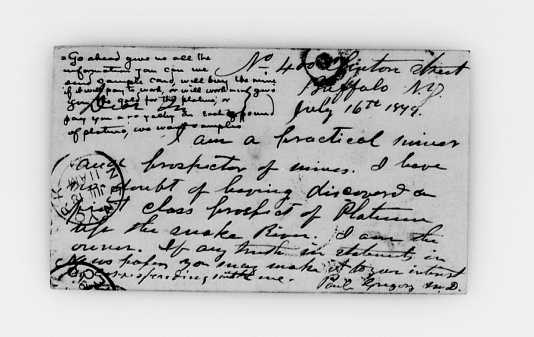 Go ahead give us all the
information you can we
send sample card, will buy the mine
if it will pay to work, or will work and give
you the gold for the platina, or
pay you a royalty on each pound
of platina, we want samples
No 400 Clinton Street
Buffalo N.Y.
July 16th 1879.
I am a practical miner
and prospector of mines. I have
no doubt of having discovered a
first class prospect of Platinum
up the Snake River. I am the
owner. If any truth in statements in
News paper you may make it to your interest
corresponding with me.
Paul Gregory M.D.
NEW YORK
JUL
11 AM